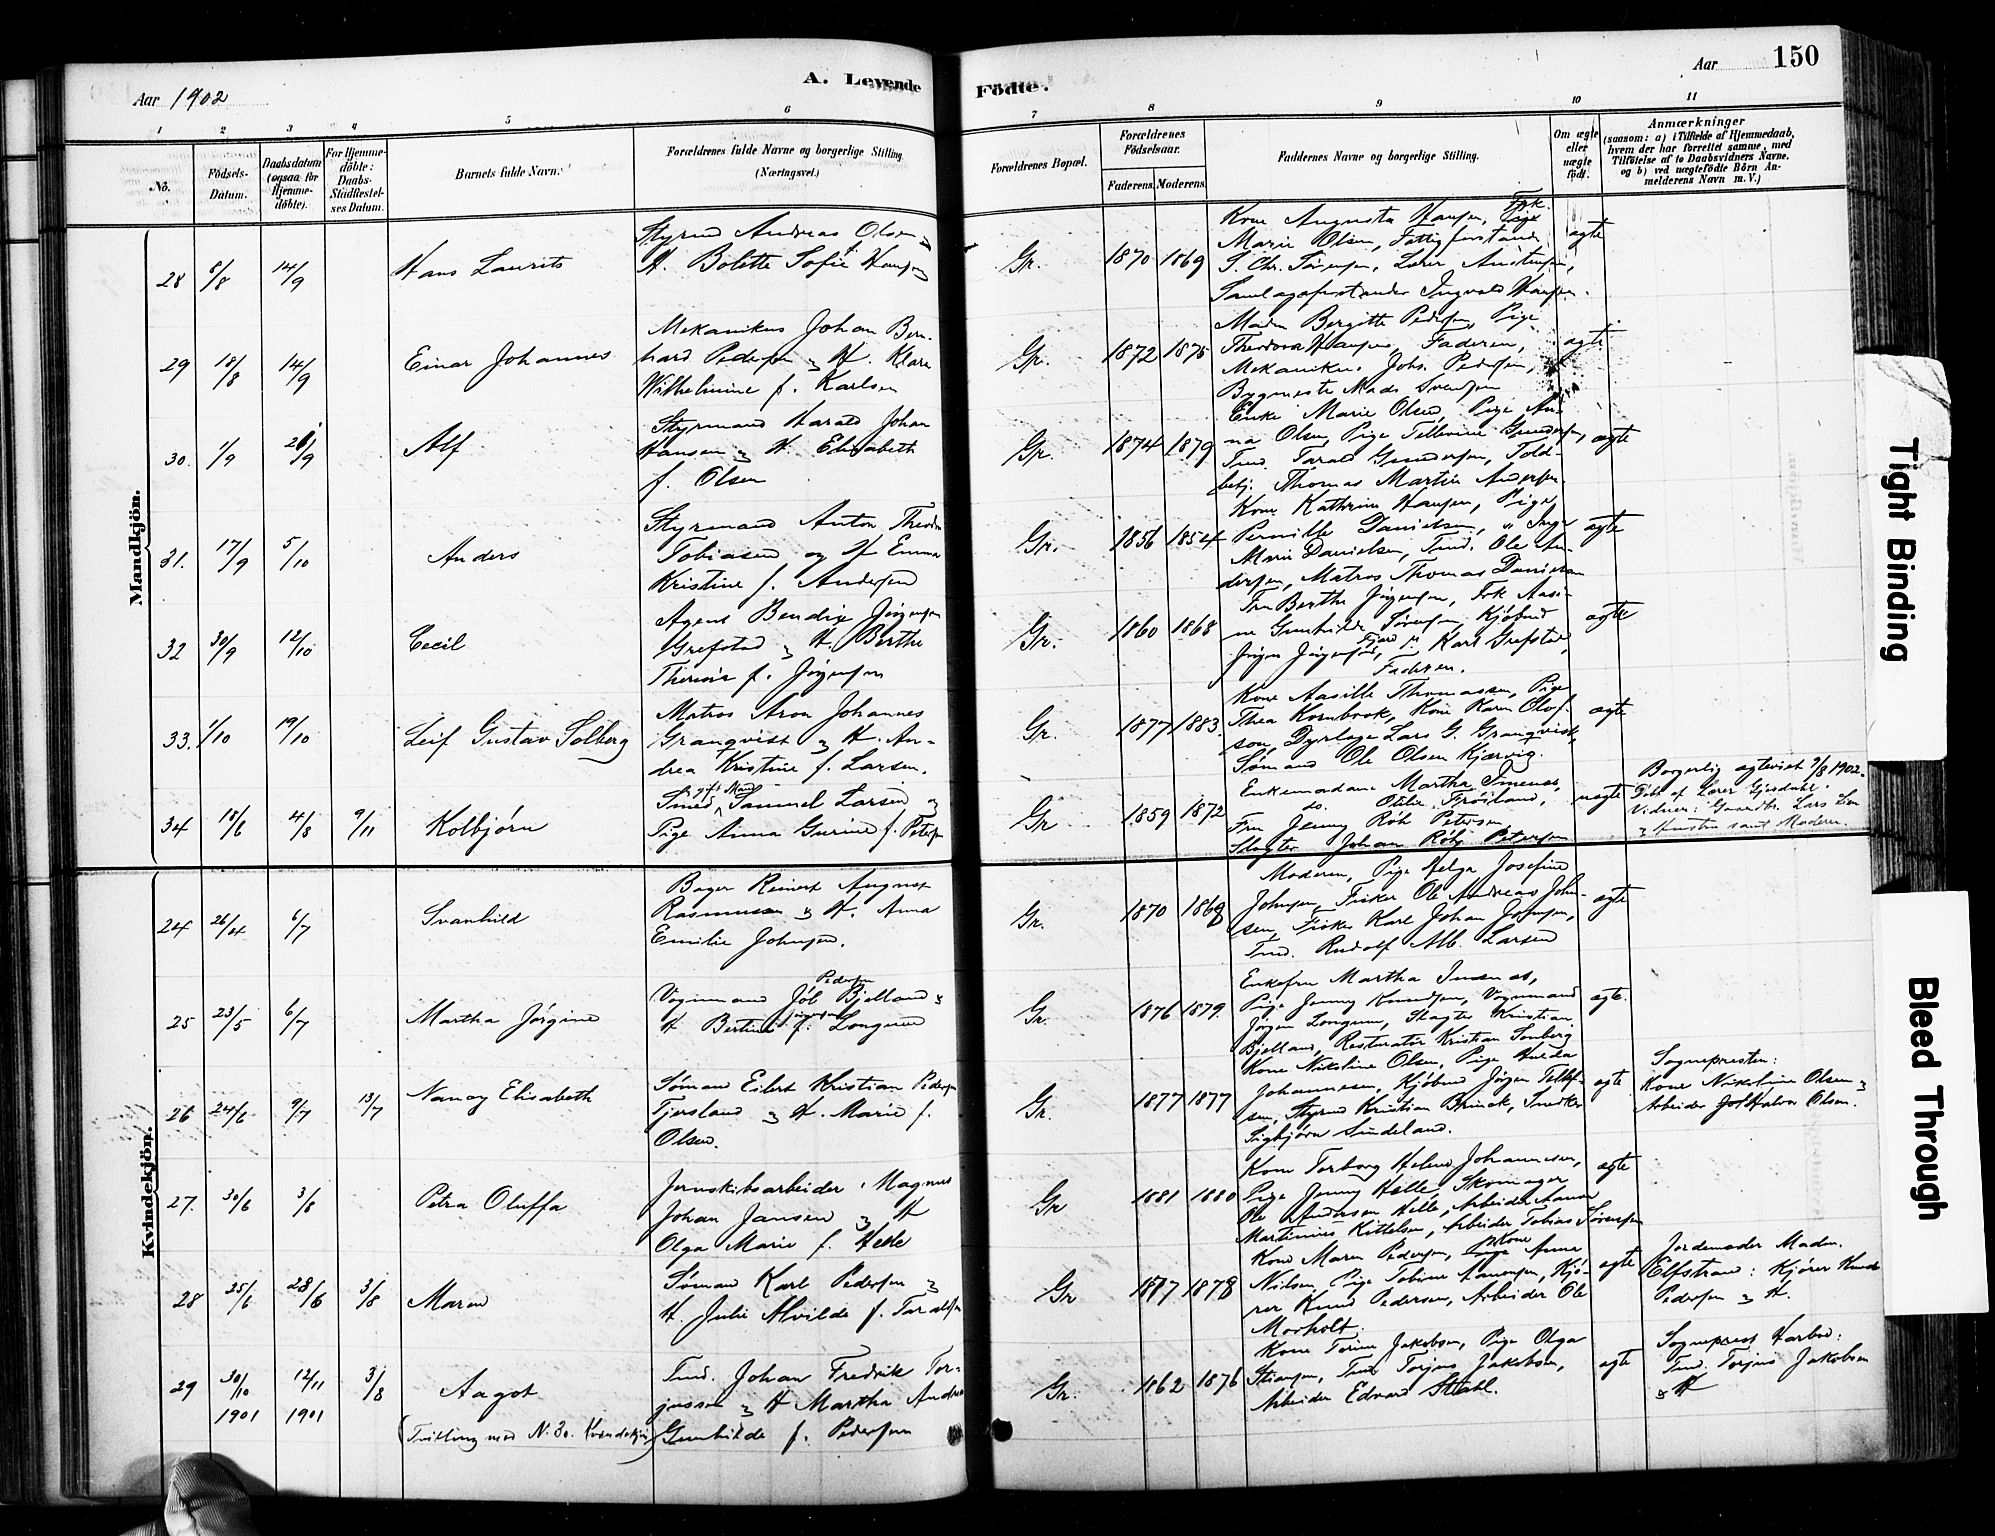 A. Levende
Födte.
Aar 1902
Aar
150
1 2 3 4 5 6 7 8 9 10 11
No.
Födsels-
Datum.
Daabsdatum
(ogsaa for
Hjemme-
döbte).
For Hjemme-
döbte:
Daabs-
Stadfæstel-
ses Datum.
Barnets fulde Navn.
Forældrenes fulde Navne og borgerlige Stilling
(Næringsvei.)
Forældrenes Bopæl.
Forældrenes
Födselsaar.
Faderens. Moderens.
Faddernes Navne og borgerlige Stilling.
Om ægte
eller
uægte
födt.
Anmærkninger
(saasom: a) i Tilfælde af Hjemmedaab,
hvem der har forrettet samme, med
Tilföielse af to Daabsvidners Navne.
og b) ved uægtefödte Börn An-
melderens Navn m. V.)
Mandkjön.
28 8/8 14/9 Hans Laurits
Styrmd Andreas Olsen
H. Bolette Sofie f. Hansen
Gr. 1870 1869
Kone Augusta Hansen, Frk.
Marie Olsen, Fattigforstander
S. Chr. Sörensen, Lærer Austensen,
Samlagsforstander Ingvald Hansen.
ægte
29 18/8 14/9 Einar Johannes
Mekanikus Johan Bern-
hard Pedersen & H. Klara
Wilhelmine f. Karlsen
Gr. 1872 1875
Madm Bergitte Pedersen, Pige
Theodora Hansen, Faderen,
Mekanikus Johs. Pedersen,
Bygmester Mads Svensen
ægte
30. 1/9 21/9 Alf
Styrmand Harald Johan
Hansen & H. Elisabeth
f. Olsen
Gr. 1874 1879
Enke Marie Olsen, Pige An-
na Olsen, Pige Tellevine Gundersen,
Tmd. Tarald Gundersen, Told-
betj. Thomas Martin Andersen.
ægte
31. 17/9 5/10 Anders
Styrmand Anton Theodor
Tobiasen og H Emma
Kristine f. Andersen
Gr. 1856 1854
Kone Kathrine Hansen, Pige
Pernille Danielsen, " Inge
Marie Danielsen, Tmd. Ole An-
dersen, Matros Thomas Danielsen
ægte
32 30/9 12/10 Cecil
Agent Bendix Jörgensen
Grefstad & H. Berthe
Therese f. Jörgensen
Gr. 1860 1868
Fru Berthe Jörgensen, Frk Aasi-
ne Gunhilde Sörensen, Kjöbmd
Jörgen Jörgensen, Karl Grefstad,
Faderen.
ægte
33. 1/10 19/10 Leif Gustav Solberg
Matros Aron Johannes
Granqvist & H. An-
drea Kristine f. Larsen.
Gr. 1877 1883
Kone Aasille Thomassen, Pige
Thea Kornbrok, Kone Karen Olof-
son, Dyrlæge Lars G. Granqvist,
Sömand Ole Olsen Kjærvig.
ægte
34 18/6 4/8 9/11 Kolbjörn
Smed Samuel Larsen og
Pige Anna Gurine f. Peters
Gr 1859 1872
Enkemadam Martha Imenes,
do. Otilie Fröiland,
Fru Jenny Röh Petersen
Slagter Johan Röhj Petersen
uægte
Borgerlig ægteviet 9/8 1902.
Döbt af Lærer Gjosdahl.
Vidner: Gaardbr. Lars Lien
& Hustru samt Moderen.
Kvindekjön.
24 26/4 6/7 Svanhild
Bager Reinert August
Rasmussen & H. Anna
Emilie Johnsen.
Gr. 1870 1868
Moderen, Pige Helga Josefine
Johnsen, Fisker Ole Andreas John-
sen, Fisker Karl Johan Johnsen,
Tmd. Rudolf Alb. Larsen
ægte
25 23/5 6/7 Martha Jörgine
Vognmand Job Pedersen Bjelland &
H Bertine Jörgensen f. Longum
Gr. 1876 1879.
Enkefru Martha Imenes,
Pige Jenny Knudsen, Vognmand
Jörgen Longum, Slagter Kristian
Bjelland, Restoratör Kristian Sonberg
ægte.
26 24/6 9/7 13/7 Nancy Elisabeth
Sömand Eilert Kristian Pedersen
Fjersland & H. Marie f.
Olsen.
Gr. 1877 1877
Kone Nikoline Olsen, Pige Hulda
Johannesen, Kjöbmd Jörgen Tellef-
sen, Styrmd Kristian Brinck, Snedker
Sigbjörn Sundeland.
ægte
Sognepresten:
Kone Nikoline Olsen &
Arbeider Halvor Olsen.
27. 30/6 3/8 Petra Oluffa
Jernskibsarbeider Magnus
Johan Jansen & H
Olga Marie f. Helle
Gr 1881 1880
Kone Torborg Helene Johannesen,
Pige Jenny Helle, Skomager
Ole Andersen Helle, Arbeider Aanon
Martinius Kittelsen, Arbeider Tobias Sörensen
ægte
28 25/6 28/6 3/8 Maren
Sömand Karl Pedersen &
H. Julie Alvilde f. Taraldsen
Gr 1877 1878
Kone Maren Pedersen, Kone Anna
Nilsen, Pige Tobine Aanonsen, Kjö-
rer Knud Pedersen, Arbeider Ole
Morholt.
ægte
Jordemoder Madm.
Elfstrand: Kjörer Knud
Pedersen & H.
29 30/10 1901 12/11 1901 3/8 Aagot
(Tvilling med N. 30. Kvindekjön)
Tmd. Johan Fredrik Tor-
jussen & H Martha Andrea
Gunhilde f. Pedersen
Gr. 1862 1876
Kone Torine Jakobsen, Pige Olga
Stiansen, Tmd Torjus Jakobsen,
Arbeider Edvard Stahl.
ægte
Sogneprest Harboe:
Tmd. Torjus Jakobsen
& H
Tight Binding
Bleed Through